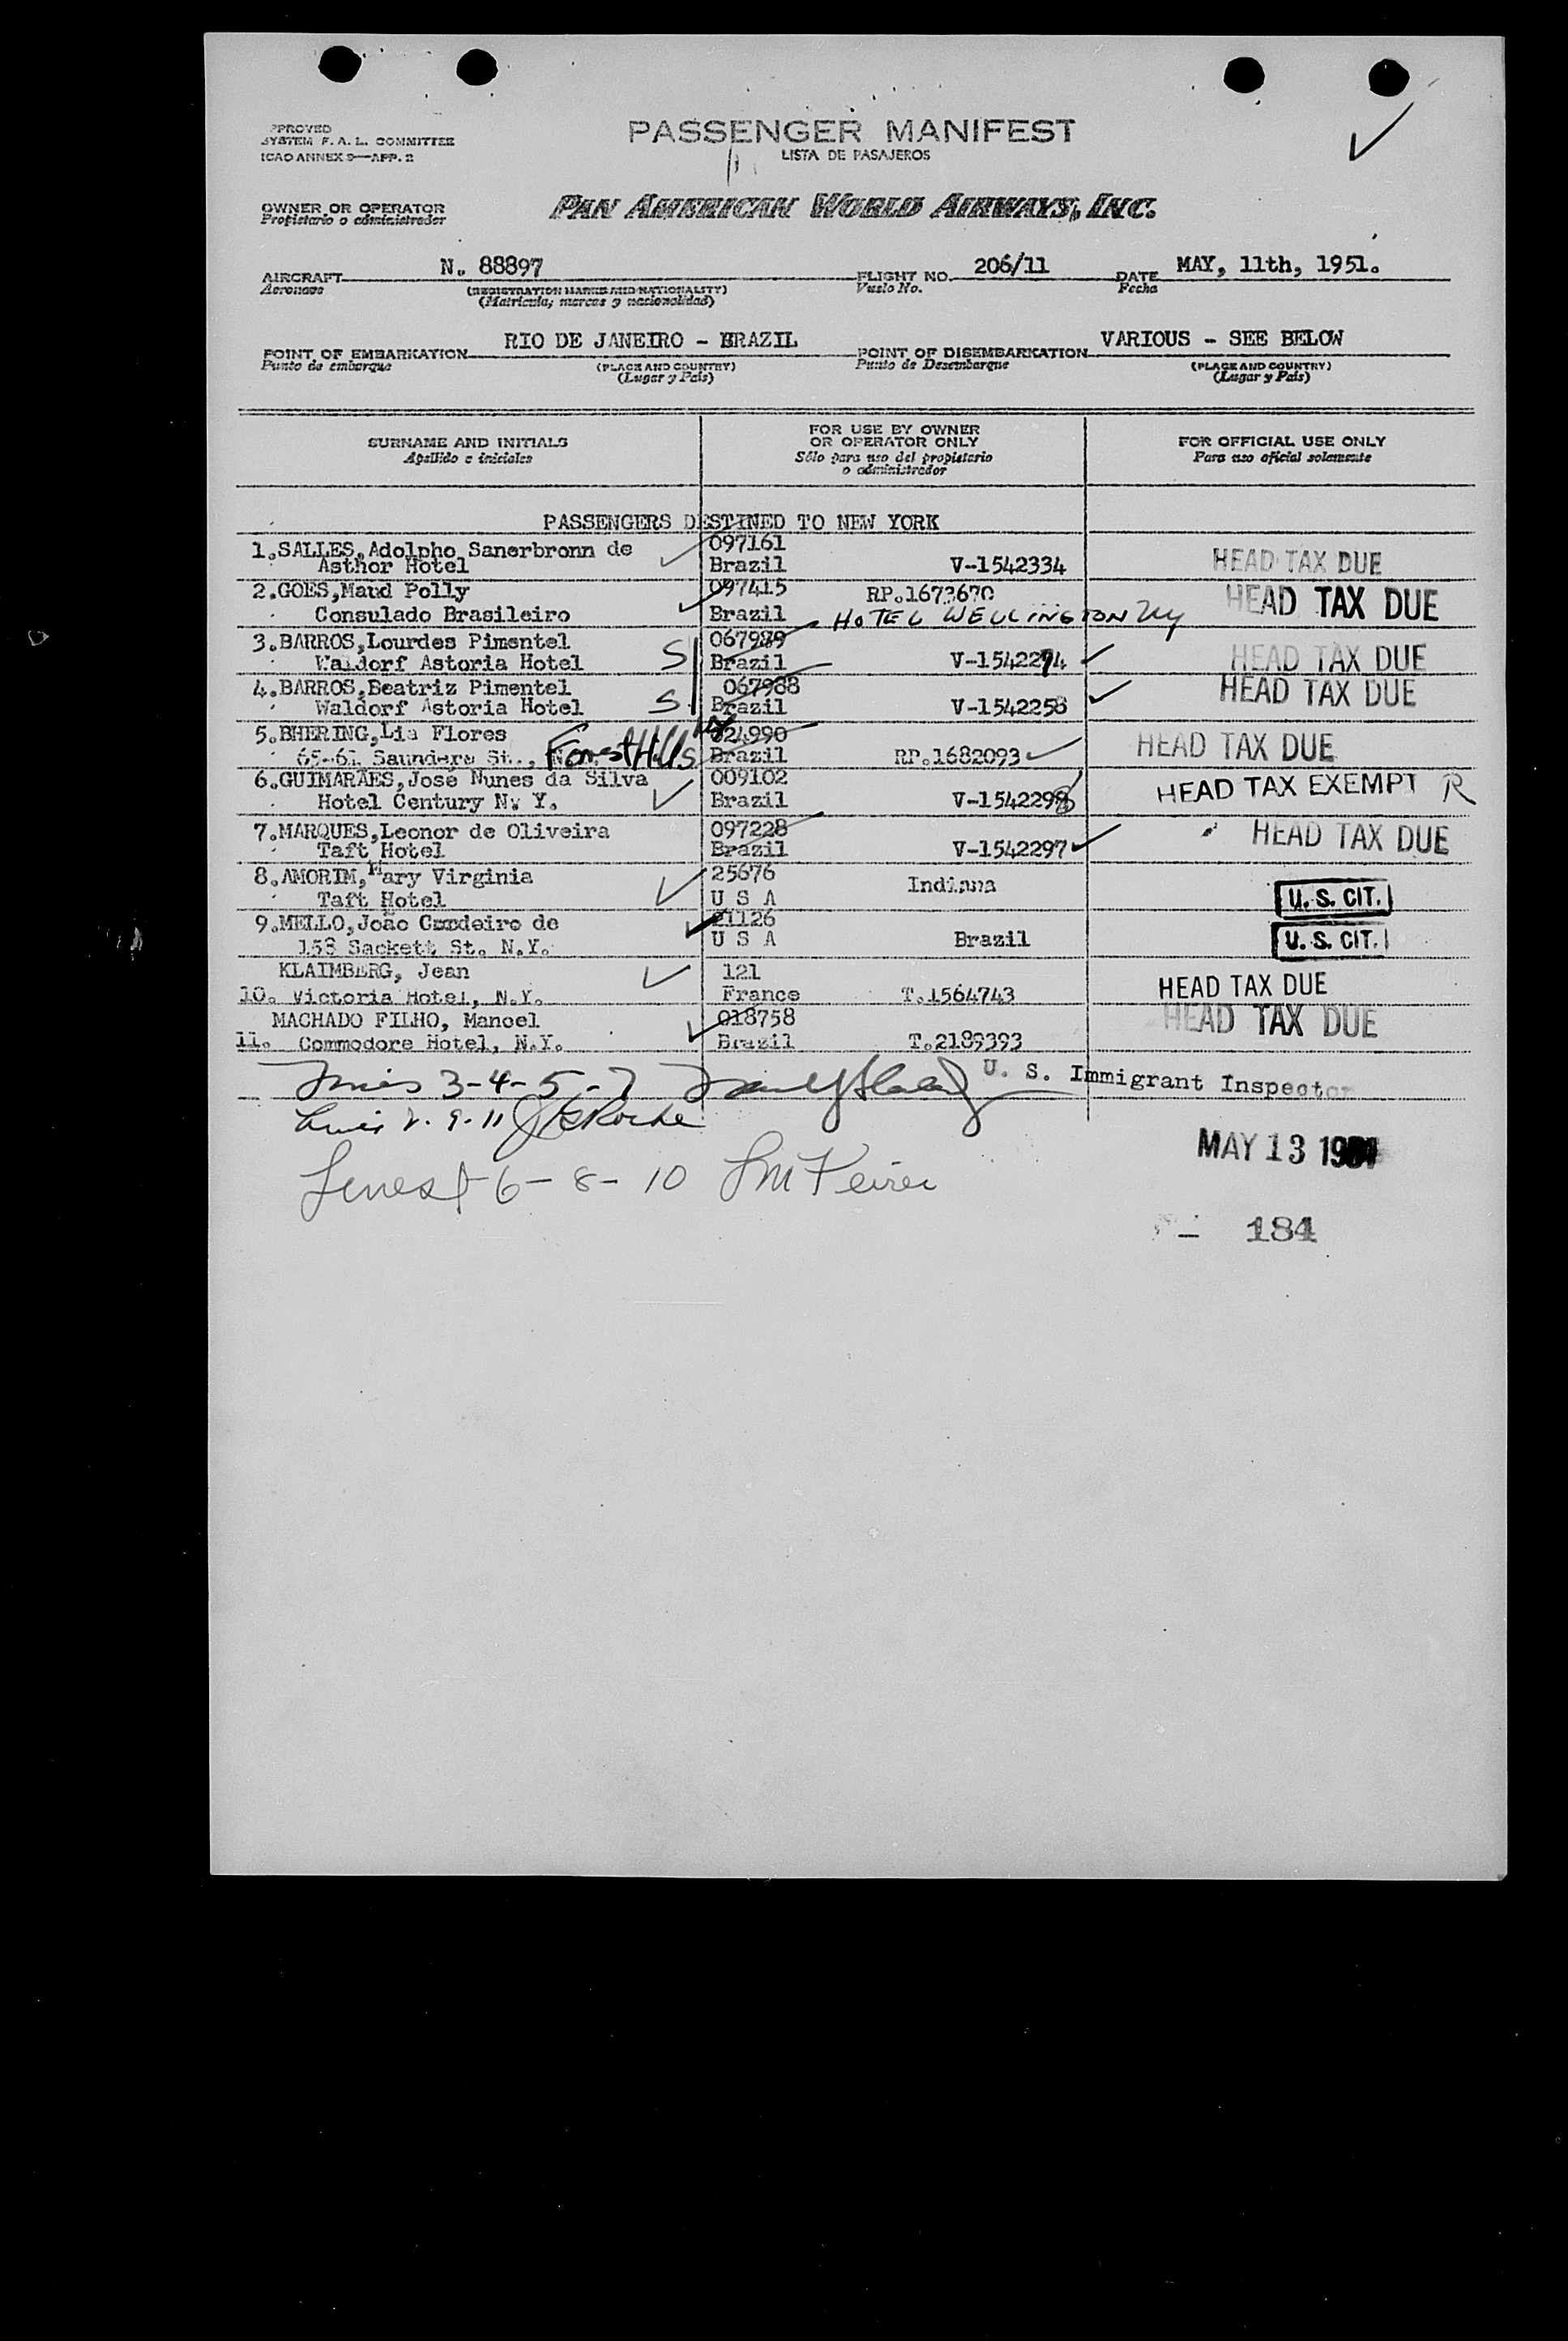 PPROVED
SYSTEM F. A. L. COMMITTEE
ICAO ANNEX 9—APP. 2
PASSENGER MANIFEST
LISTA DE PASAJEROS
OWNER OR OPERATOR
Propietario o administrador
PAN AMERICAN WORLD AIRWAYS, INC.
AIRCRAFT N. 88897 FLIGHT NO. 206/11 DATE MAY, 11th, 1951.
Aeronave (REGISTRATION MARKS AND NATIONALITY) Vuelo No. Fecha
(Matricula, marcas y nacionalidad)
POINT OF EMBARKATION RIO DE JANEIRO - BRAZIL POINT OF DISEMBARKATION VARIOUS - SEE BELOW
Punto de embarque (PLACE AND COUNTRY) Punto de Desembarque (PLACE AND COUNTRY)
(Lugar y País) (Lugar y País)
SURNAME AND INITIALS FOR USE BY OWNER OR OPERATOR ONLY FOR OFFICIAL USE ONLY
Apellido e iniciales Sólo para uso del propietario o administrador Para uso oficial solamente
PASSENGERS DESTINED TO NEW YORK
1.SALLES,Adolpho Sanerbronn de 097161
Asthor Hotel Brazil V-1542334 HEAD TAX DUE
2.GOES,Maud Polly 097415 RP.1673670 HEAD TAX DUE
Consulado Brasileiro Brazil HOTEL WELLINGTON NY
3.BARROS,Lourdes Pimentel 067989
Waldorf Astoria Hotel S Brazil V-1542294 HEAD TAX DUE
4.BARROS,Beatriz Pimentel 067988 HEAD TAX DUE
Waldorf Astoria Hotel S Brazil V-1542258
5.BHERING,Lia Flores 024990 HEAD TAX DUE
65-61 Saunders St., Forest Hills Brazil RP.1682093
6.GUIMARÃES,José Nunes da Silva 009102 HEAD TAX EXEMPT R
Hotel Century N. Y. Brazil V-1542298
7.MARQUES,Leonor de Oliveira 097228 HEAD TAX DUE
Taft Hotel Brazil V-1542297
8.AMORIM,Mary Virginia 25676 Indiana
Taft Hotel U S A U. S. CIT.
9.MELLO,João Cordeiro de 21126
158 Sackett St. N.Y. U S A Brazil U. S. CIT.
KLAIMBERG, Jean 121
10. Victoria Hotel, N.Y. France T.1564743 HEAD TAX DUE
MACHADO FILHO, Manoel 018758 HEAD TAX DUE
11. Commodore Hotel, N.Y. Brazil T.2189393
3-4-5-7 U. S. Immigrant Inspector
9-11
6-8-10
MAY 13 1951
184